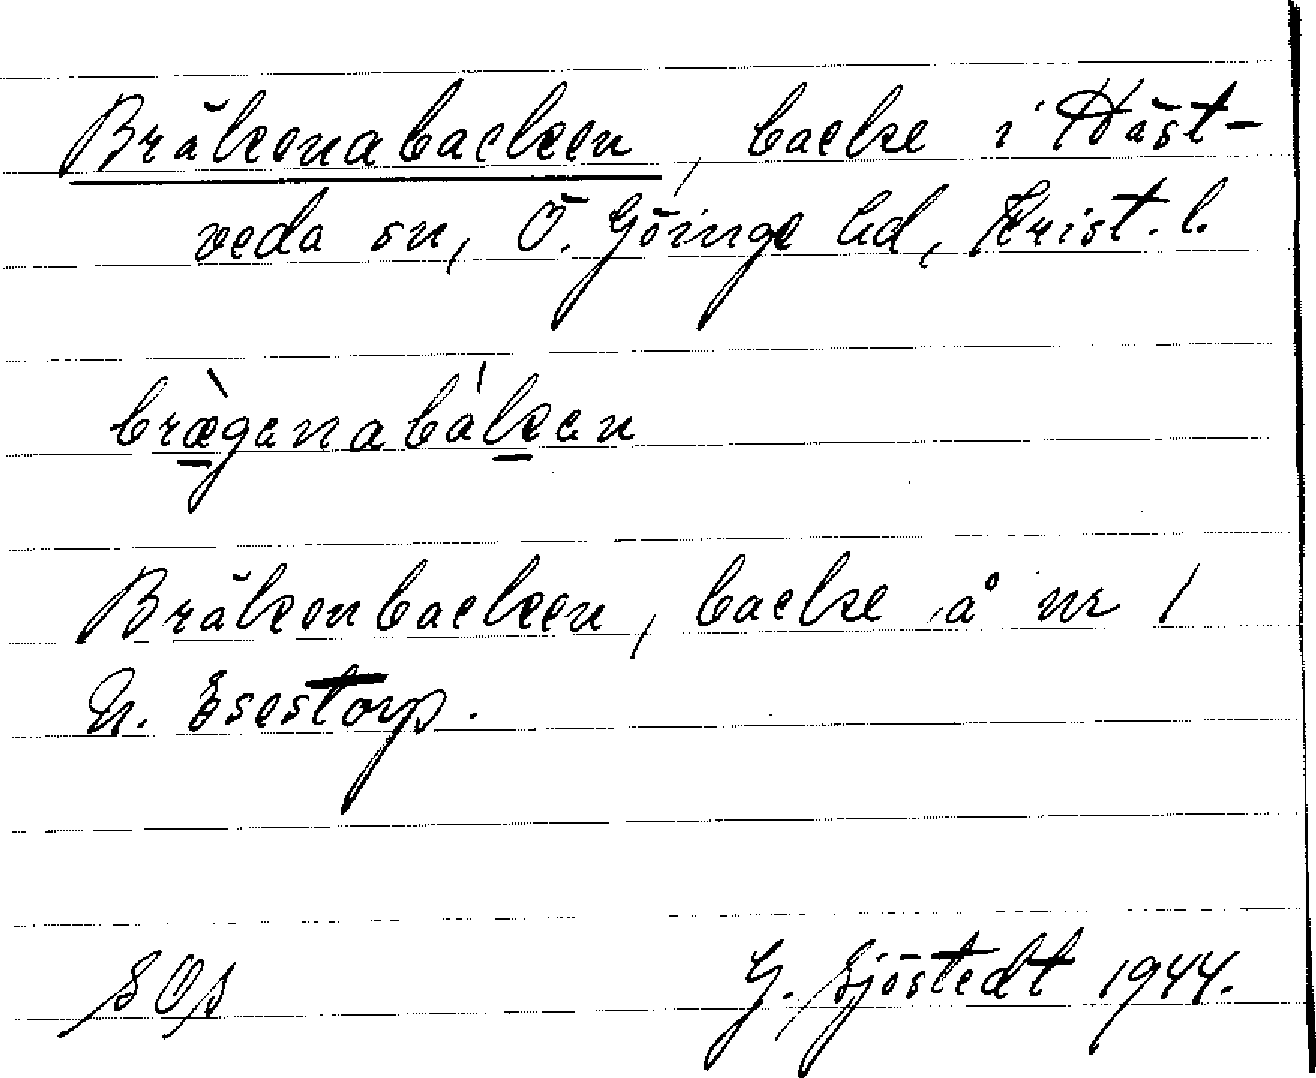 Bräkenabacken, backe i Häst-
veda sn, Ö. Göinge hd, Krist. l.
bræ̀ganabákan
Bräkenbacken, backe å nr 1
N. Esestorp.
SOS G. Sjöstedt 1944.